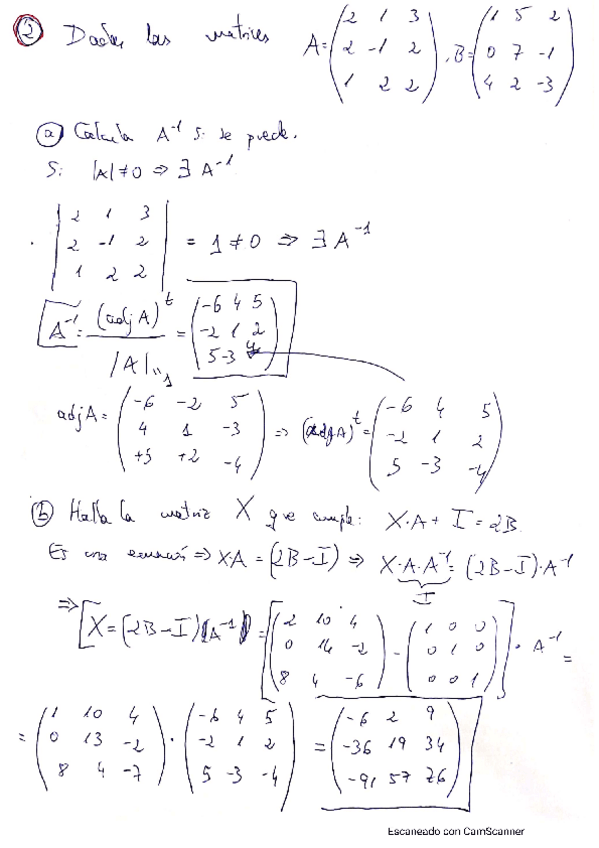 ② Dadas las matrices A=(2 1 3 / 2 -1 2 / 1 2 2), B=(1 5 2 / 0 7 -1 / 4 2 -3)
ⓐ Calcula A⁻¹ si se puede.
Si |A|≠0 ⇒ ∃ A⁻¹
|2 1 3 / 2 -1 2 / 1 2 2| = 1 ≠ 0 ⇒ ∃ A⁻¹
A⁻¹ = (adj A)ᵗ / |A| = (-6 4 5 / -2 1 2 / 5 -3 -4)
" 1
adj A = (-6 -2 5 / 4 1 -3 / +5 +2 -4) ⇒ (adj A)ᵗ = (-6 4 5 / -2 1 2 / 5 -3 -4)
ⓑ Halla la matriz X que cumple: X·A + I = 2B
Es una ecuación ⇒ X·A = (2B-I) ⇒ X·A·A⁻¹ = (2B-I)·A⁻¹
I
⇒ [X = (2B-I)(A⁻¹) = [(2 10 4 / 0 14 -2 / 8 4 -6) - (1 0 0 / 0 1 0 / 0 0 1)] · A⁻¹ =
= (1 10 4 / 0 13 -2 / 8 4 -7) · (-6 4 5 / -2 1 2 / 5 -3 -4) = (-6 2 9 / -36 19 34 / -91 57 76)
Escaneado con CamScanner